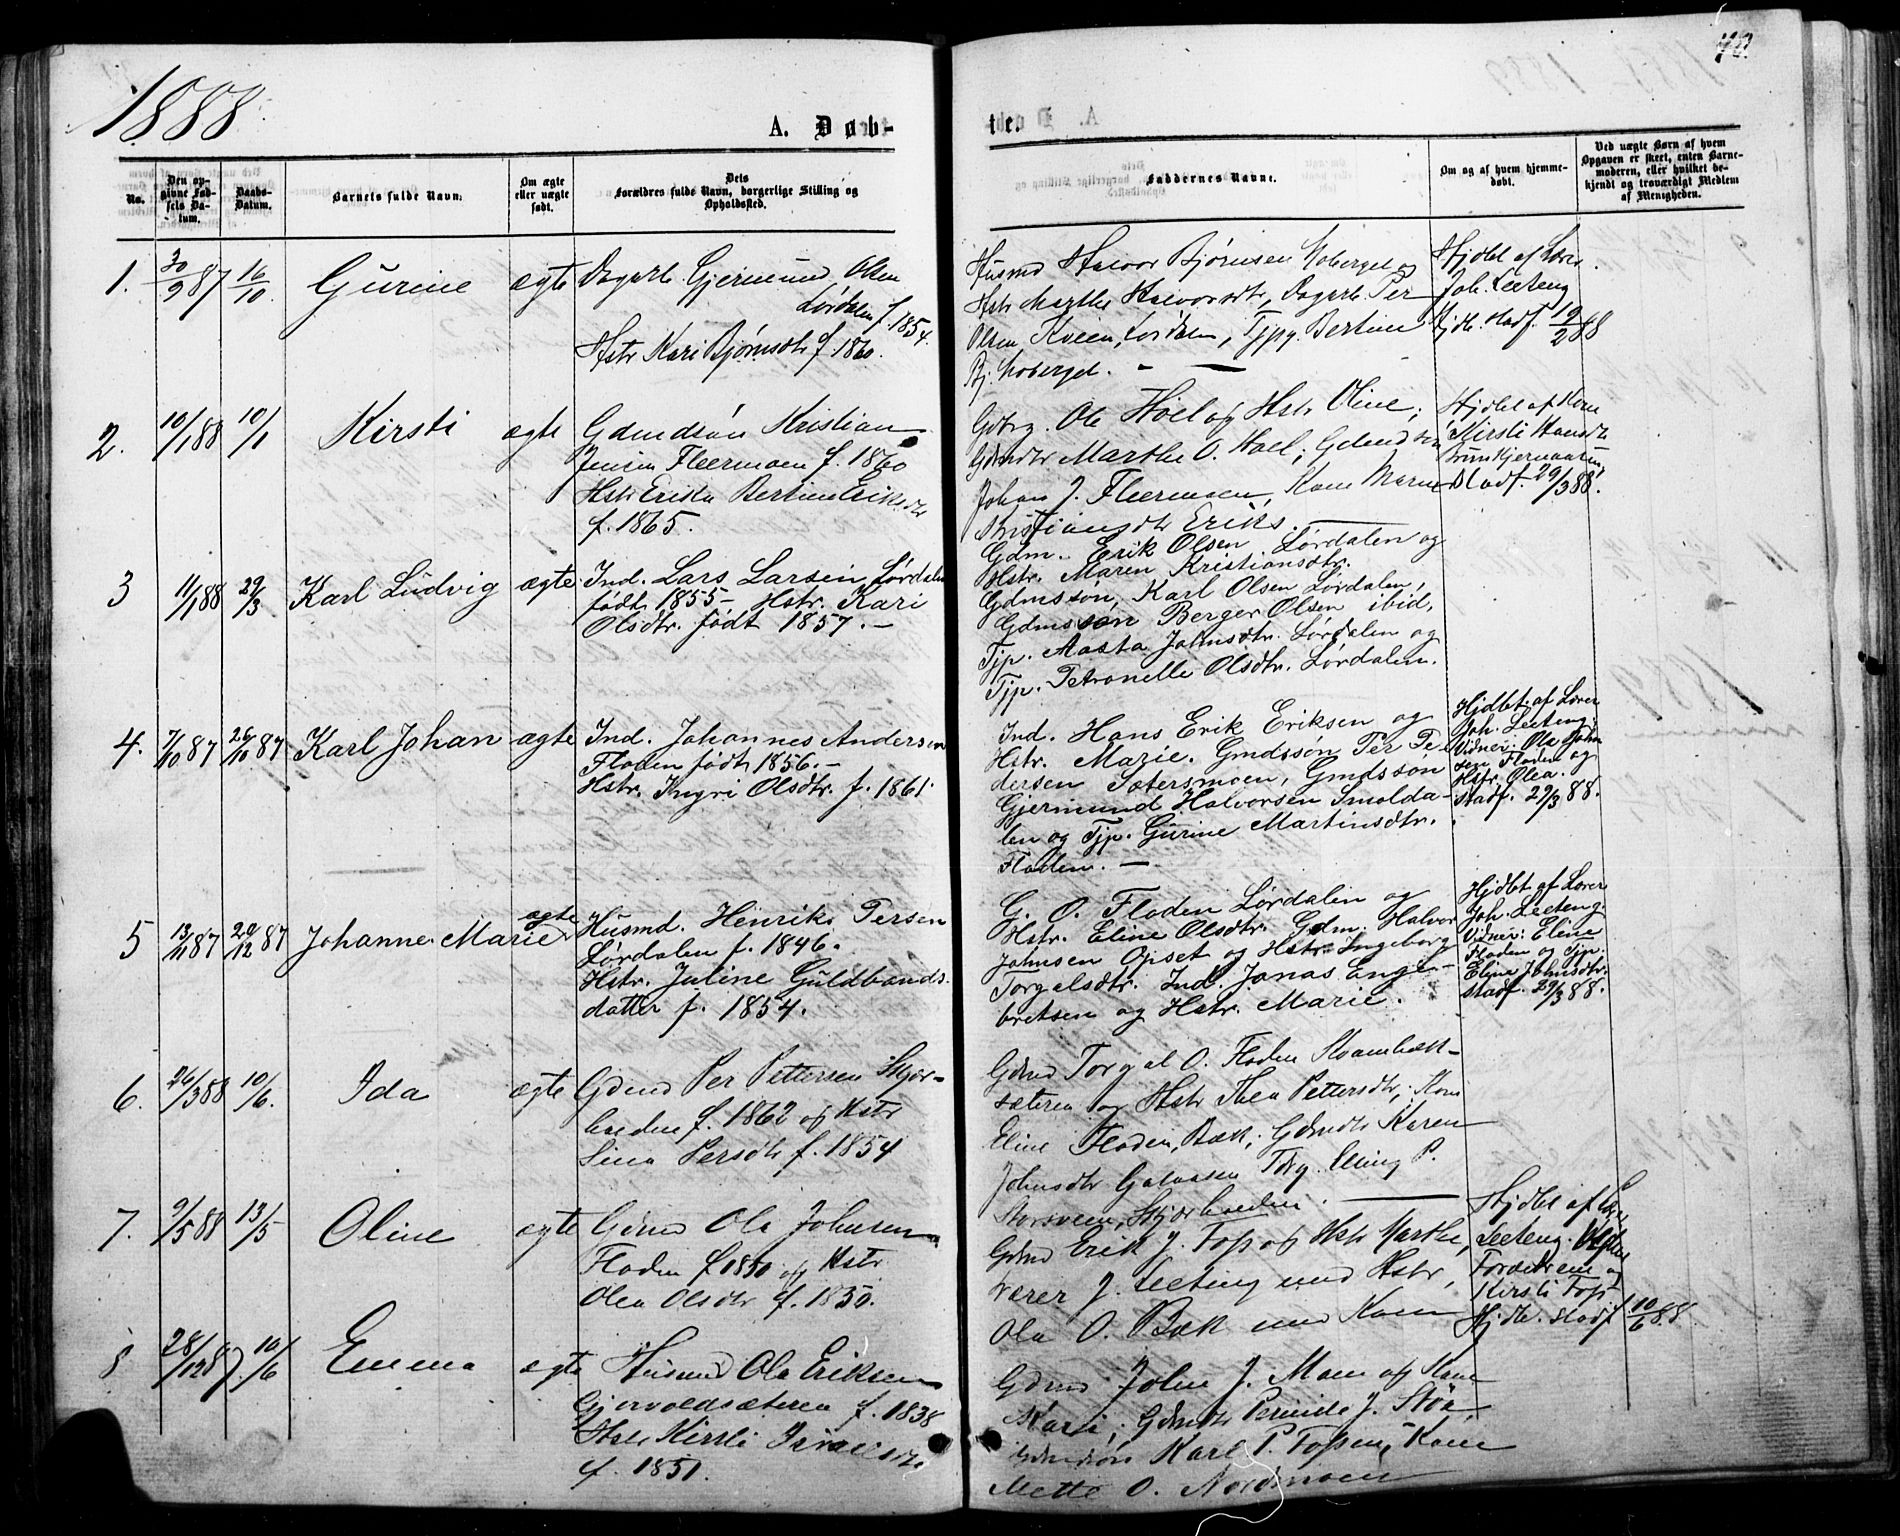 1888
A. Døb-
No.
Den opgivne Fødsels Datum.
Daabs-Datum.
Barnets fulde Navn.
Om ægte eller uægte født.
Dets Forældres fulde Navn, borgerlige Stilling og Opholdssted.
1. 30/9 87 16/10. Gurine ægte Dagarb. Gjermund Olsen
Lördalen f. 1854.
Hstr Kari Bjørnsdtr f. 1860.
2. 10/1 88 10/1 Kirsti ægte Gdmdsön Kristian
Jensen Fleermoen f. 1860
Hstr Erika Bertine Eriksdtr
f. 1865.
3 11/1 88 29/3 Karl Ludvig ægte Ind. Lars Larsen Lørdalen
født 1855 – Hstr. Kari
Olsdtr. født 1857. –
4. 7/10 87 26/10 87 Karl Johan ægte Ind. Johannes Andersen
Floden født 1856. –
Hstr. Ingri Olsdtr. f. 1861.
5 13/11 87 29/12 87 Johanne Marie ægte Husmd. Henrik Persen
Lørdalen f. 1846.
Hstr. Juline Guldbands-
datter f. 1854.
6. 26/3 88 10/6. Ida ægte Gdmd Per Pettersen Skjær-
f. 1862 og Hstr
Sina Persdtr f. 1854
7. 9/5 88 13/5 Oline ægte Gdmd Ola Johnsen
Floden f. 1850 og Hstr
Olea Olsdtr f. 1850.
8 28/12 87. 10/6 Emma ægte Husmd Ola Eriksen
Gjervoldsæteren f. 1838
Hstr Kirsti
f. 1851.
te.
Faddernes Navne.
Om og af hvem hjemmedøbt.
Ved uægte Børn af hvem Opgaven er skeet, enten Barnemoderen, eller hvilket bekjendt og troværdigt Medlem af Menigheden.
Husmd Halvor Bjørnsen Moberget og
Hstr Marthe Halvorsdtr, Dagarb. Per
Olsen Kveen, Lördalen, Tjpg. Bertine
Bj. Moberget. – —
Hjdbt af Lærer
Joh. Leeteng
Hjdb. stadf. 19/2 88
Gdbrg. Ole Hoel og Hstr Oline;
Gdmdtr Marthe O. Hoel; Gdmdsön
Johan J. Fleermoen, Kone Maren
Kristiansdtr Eriks. —
Hjdbt af Kone
Kirsti Hansdtr
Stadf. 29/3 88.
Gdm. Erik Olsen Lørdalen og
Hstr. Maren Kristiansdtr.
Gdmssøn, Karl Olsen Lørdalen,
Gdmssøn Berger Olsen ibid,
Tjp. Aasta Johnsdtr. Lørdalen og
Tjp. Petronelle Olsdtr. Lørdalen.
Ind. Hans Erik Eriksen og
Hstr. Marie. Gmdssøn Per Pe-
dersen Sætersmoen, Gmdssøn
Gjermund Halvorsen Smolda-
len og Tjp. Gurine Martinsdtr.
Floden. —
Hjdbt af Lærer
Joh. Leeteng.
Vidner: Ola John
sen Floden og
Hstr. Olea.
stadf. 29/3 88.
G. O. Floden Lørdalen og
Hstr. Eline Olsdtr. Gdm. Halvor
Johnsen Opset og Hstr. Ingeborg
Torgalsdtr. Ind. Jonas Enge-
bretsen og Hstr. Marie.
Hjdbt af Lærer
Joh. Leeteng
Vidner: Eline
Floden og Tjp.
Eline Johnsdtr.
stadf. 29/3 88.
Gdmd Torgal O. Floden Kvambæk-
sæteren og Hstr Thea Pettersdtr; Kone
Eline Floden, Bæk; Gdmdtr Karen
Johnsdtr Galaasen
Gdmd Erik J. Foss og Hstr Marthe,
Lærer J. Leeteng med Hstr,
Ola O. Bæk med Kone
Hjdbt af Lærer
Leeteng.
Forældrene og
Kirsti Foss
Hjdb. stadf. 10/6 88.
Gdmd John J. Moen og Kone
Kari; Gdmdtr Pernille J. Stöa,
Gdmdsön Karl P. Fossen, Kone
Mette O. Nordmoen